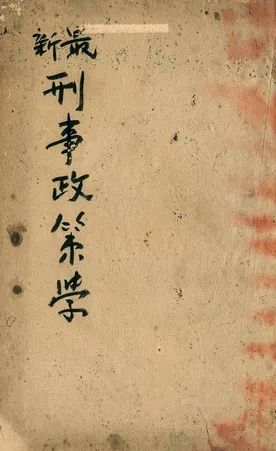 最新
刑事政策學